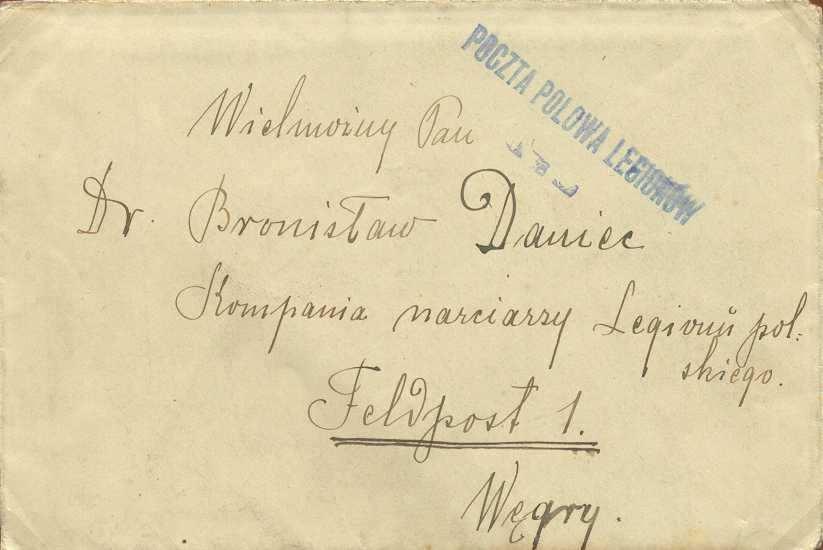 POCZTA POLOWA LEGIONÓW
Wielmożny Pan
Dr. Bronisław Daniec
Kompania narciarzy Legionu pol-
skiego.
Feldpost 1.
Węgry.